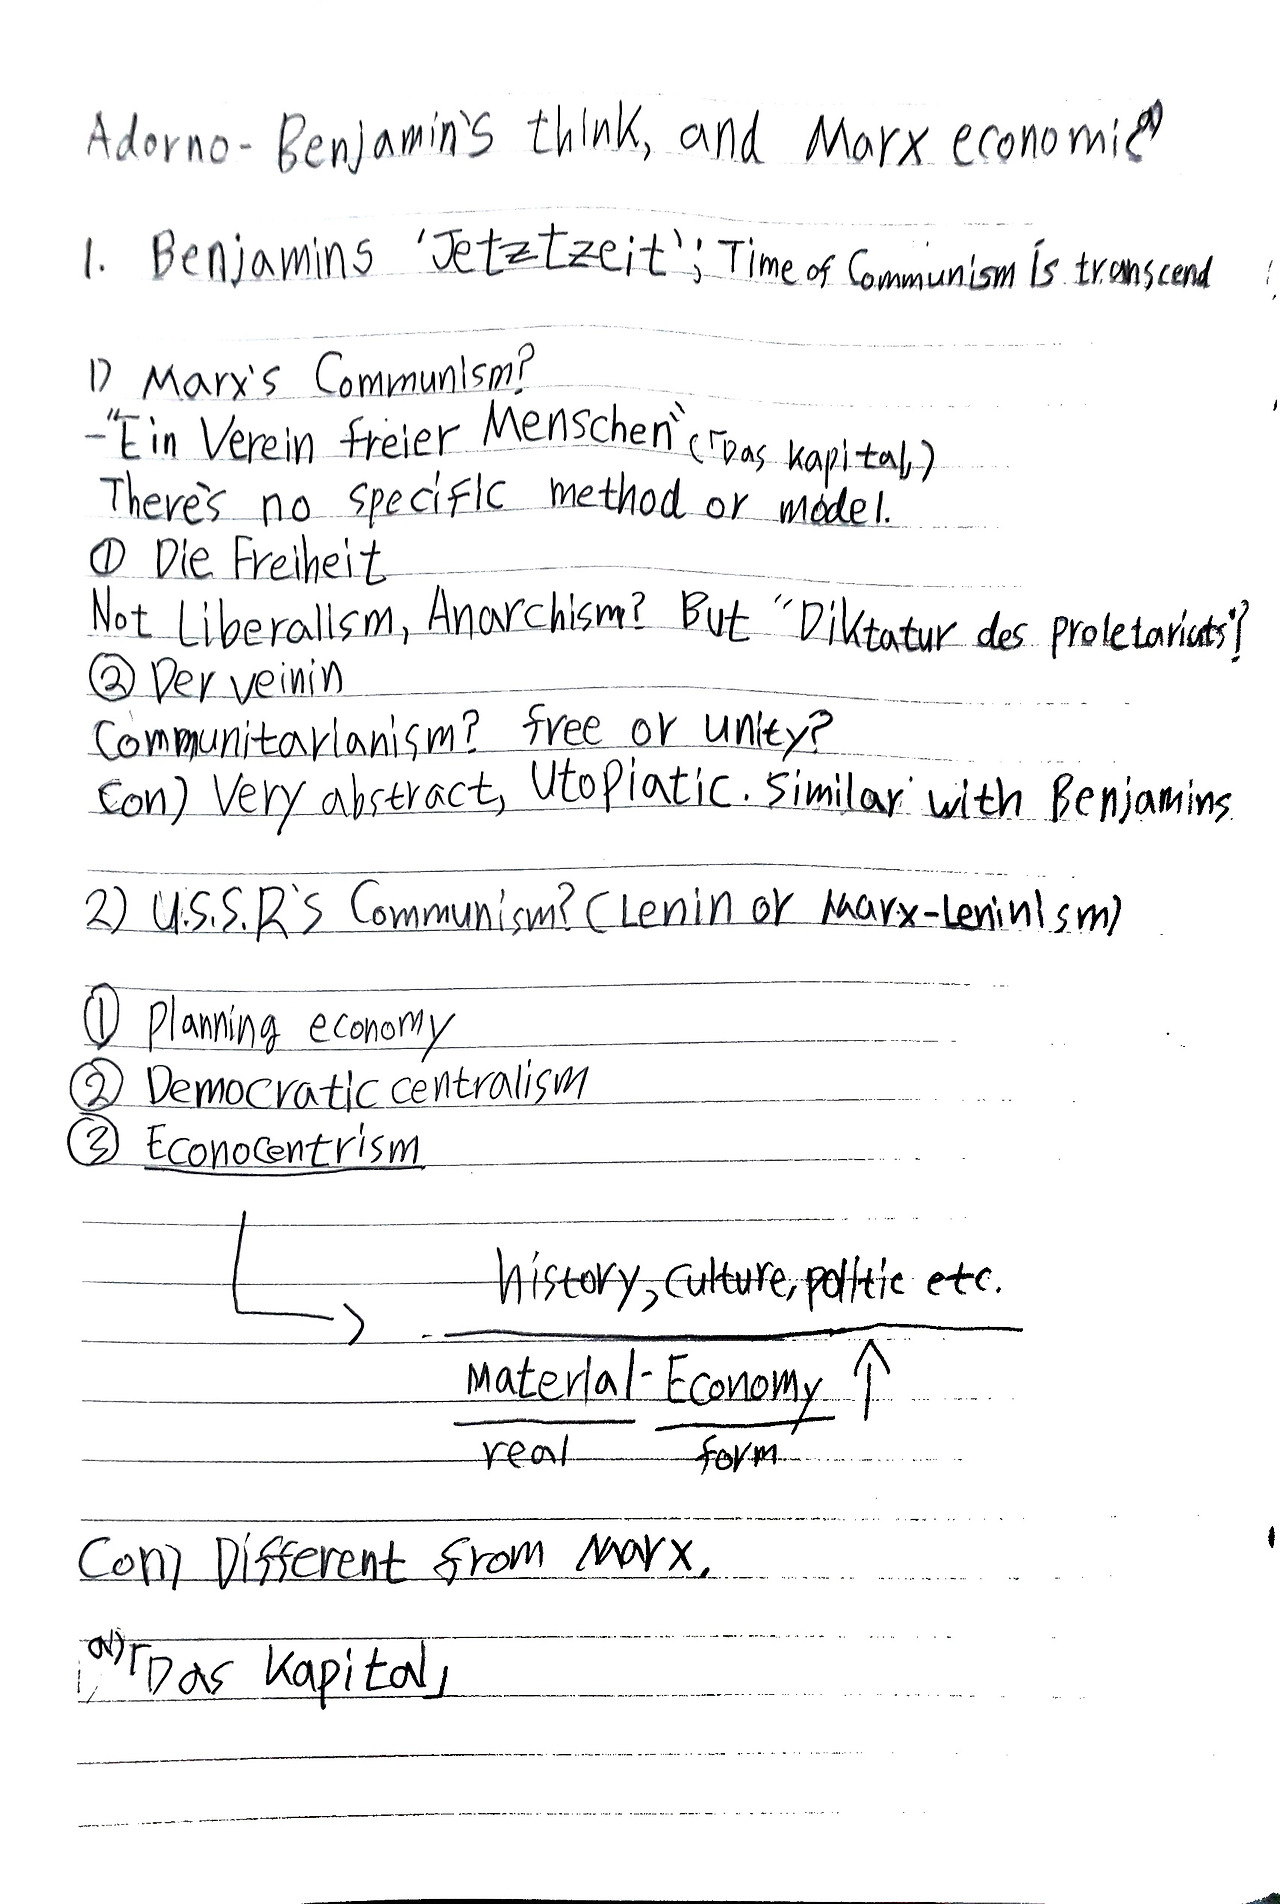 Adorno-Benjamin's think, and Marx economic a)
1. Benjamins 'Jetztzeit'; Time of Communism is transcend
1) Marx's Communism?
-"Ein Verein freier Menschen"(「Das Kapital」)
There's no specific method or model.
① Die Freiheit
Not Liberalism, Anarchism? But "Diktatur des proletariats"?
② Der veinin
Communitarianism? free or unity?
Con) Very abstract, Utopiatic. Similar with Benjamins
2) U.S.S.R's Communism? (Lenin or Marx-Leninism)
① Planning economy
② Democratic centralism
③ Econocentrism
history, culture, politic etc.
Material-Economy ↑
real form
Con) Different from Marx.
a)「Das Kapital」